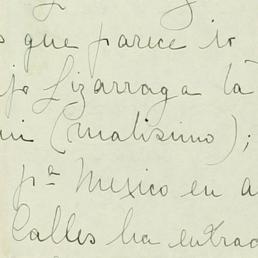 s que parece io
jo Lizarraga tã
ui (malisimo);
pª Mexico en a
Calles ha entrad